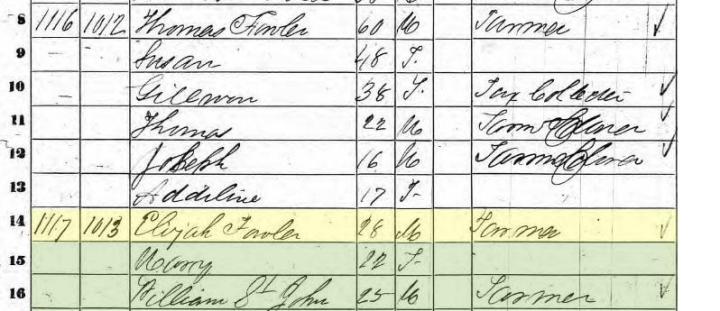 8 1116 1012 Thomas Fowler 60 M Farmer
9 Susan 48 F
10 38 F Tax Collector
11 Thomas 22 M Farm
12 Joseph 16 M Farm
13 Addeline 17 F
14 1117 1013 Elijah Fowler 28 M Farmer
15 22 F
16 William St John 25 M Farmer